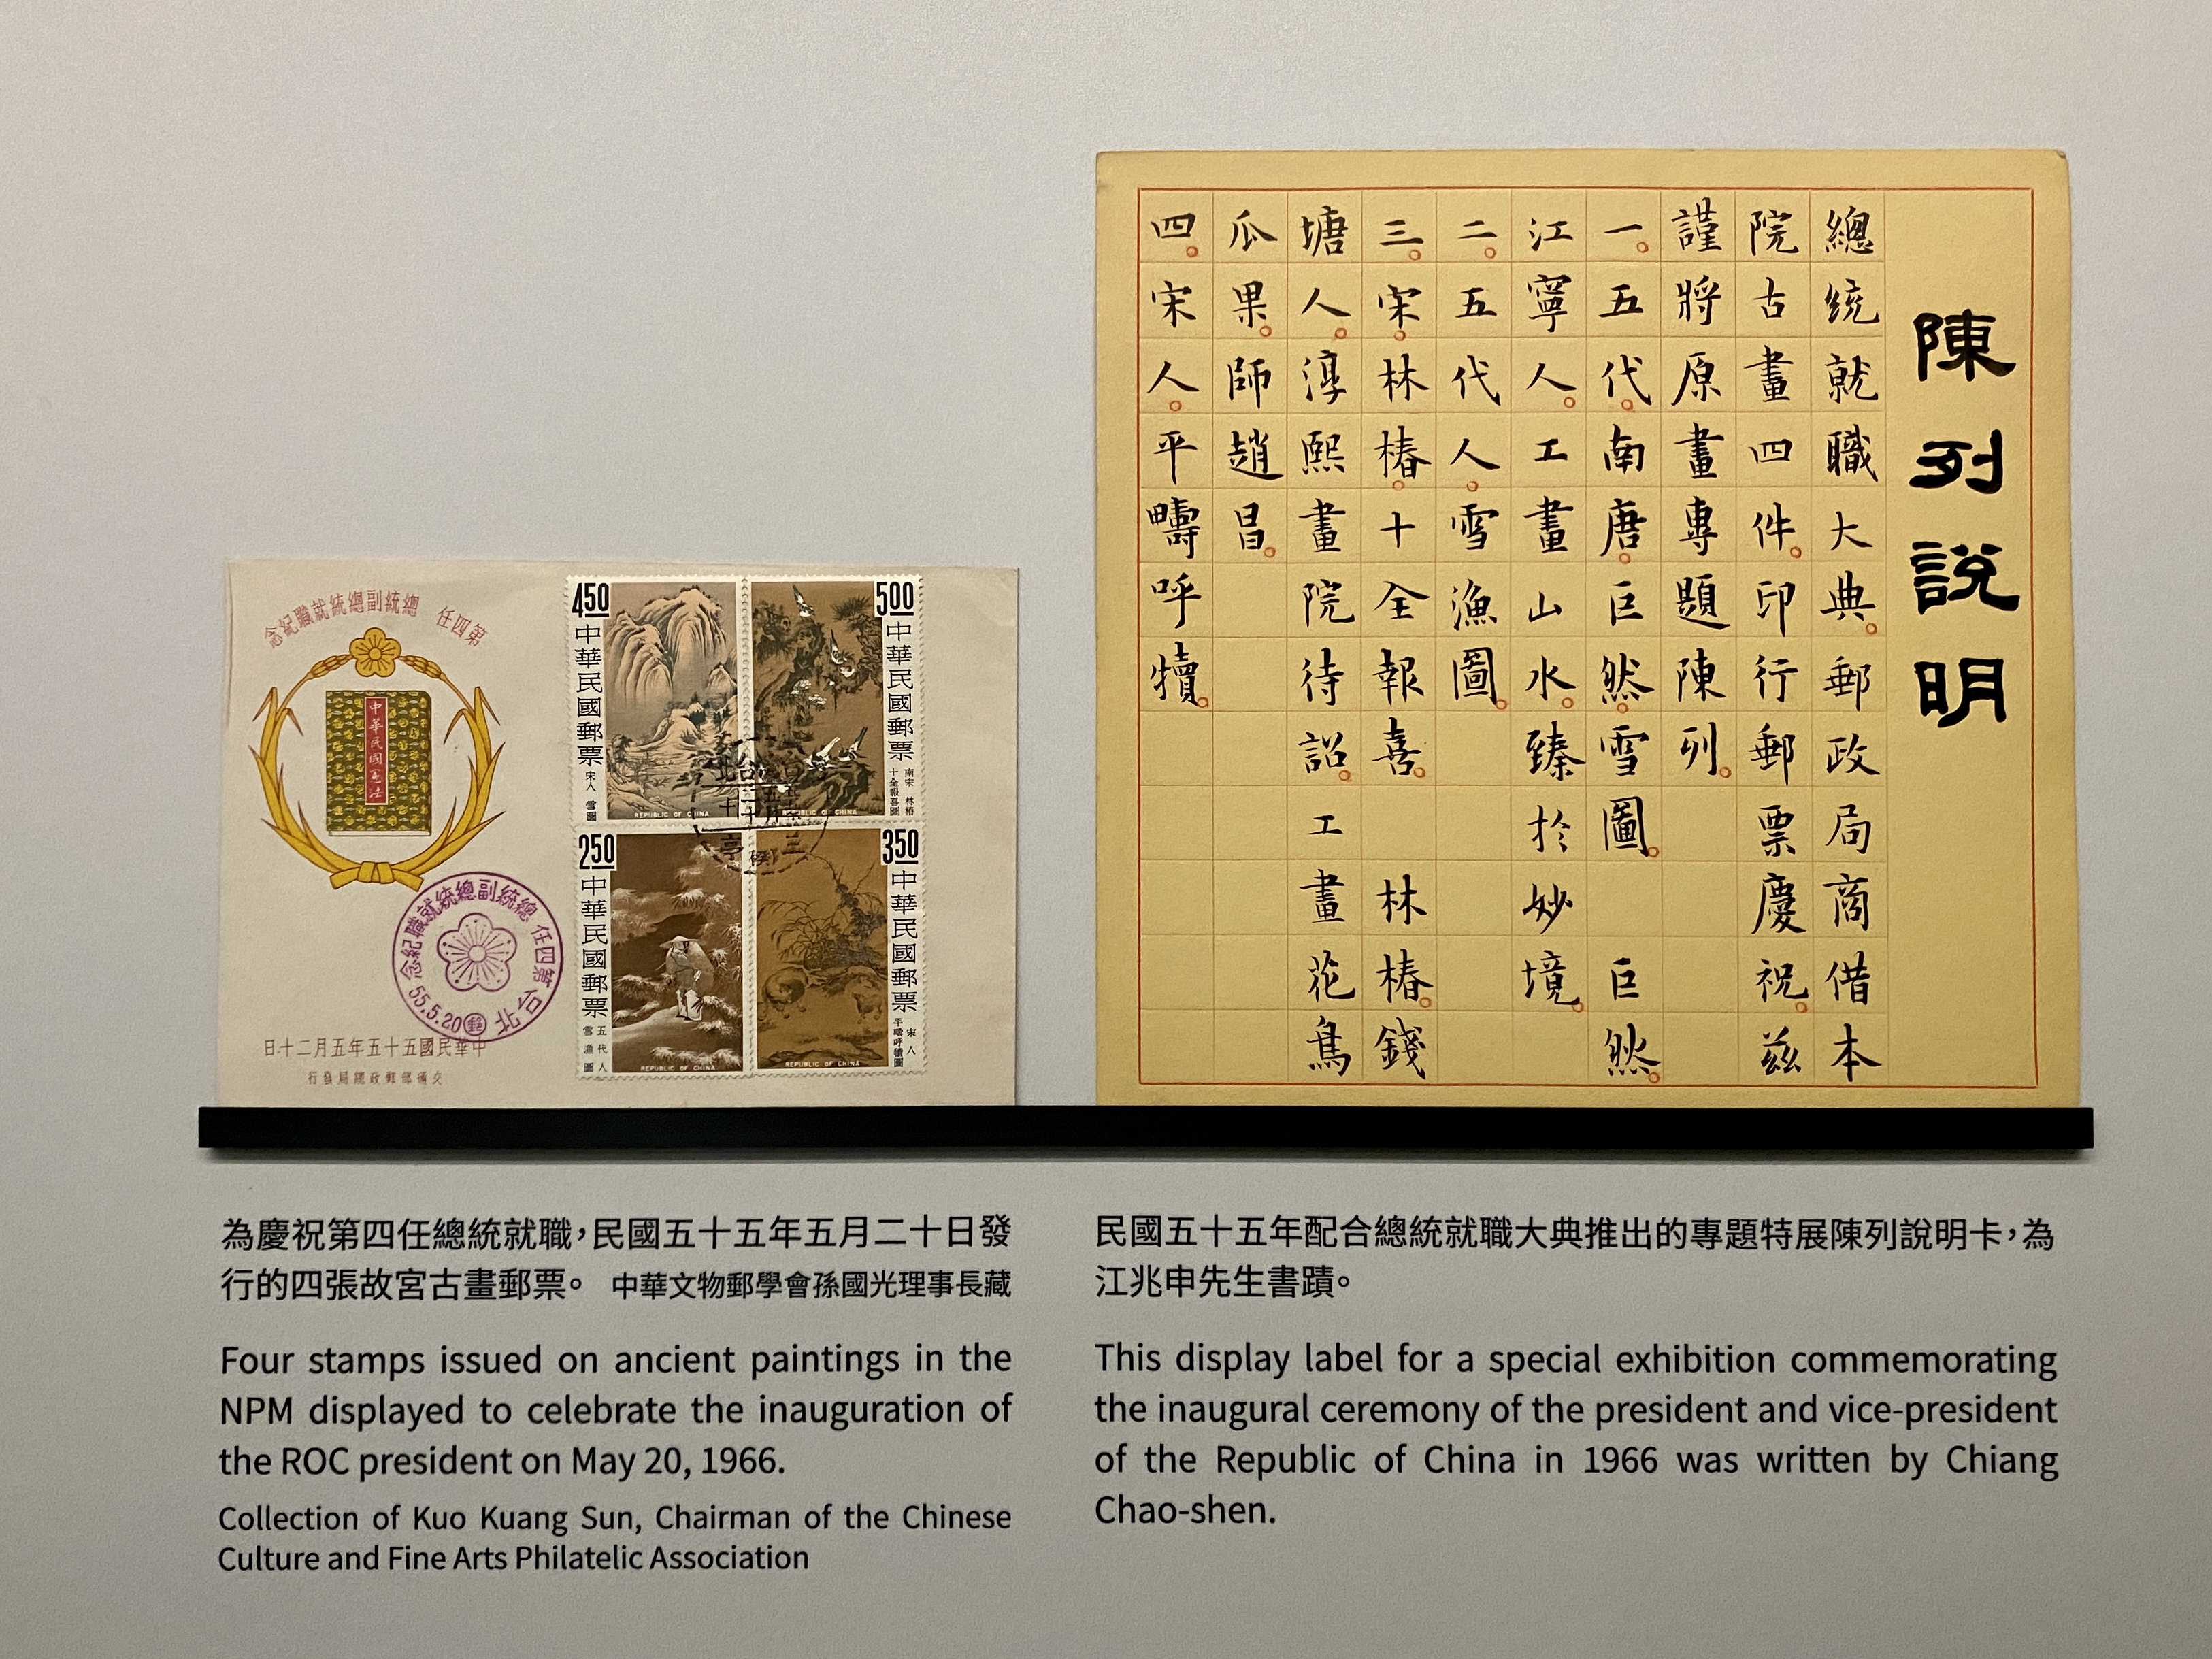 第四任 總統副總統就職紀念
中華民國憲法
第四任總統副總統就職紀念
55.5.20
台北
中華民國五十五年五月二十日
交通部郵政總局發行
450
中華民國郵票
宋人 雪圖
REPUBLIC OF CHINA
500
中華民國郵票
南宋 林椿
十全報喜圖
REPUBLIC OF CHINA
250
中華民國郵票
五代人
雪漁圖
REPUBLIC OF CHINA
350
中華民國郵票
宋人
平疇呼犢圖
REPUBLIC OF CHINA
陳列說明
總統就職大典。郵政局商借本
院古畫四件。印行郵票慶祝。茲
謹將原畫專題陳列。
一。五代。南唐。巨然。雪圖。 巨然。
江寧人。工畫山水。臻於妙境。
二。五代人。雪漁圖。
三。宋。林椿。十全報喜。 林椿。錢
塘人。淳熙畫院待詔。工畫花鳥
瓜果。師趙昌。
四。宋人。平疇呼犢。
為慶祝第四任總統就職，民國五十五年五月二十日發
行的四張故宮古畫郵票。 中華文物郵學會孫國光理事長藏
Four stamps issued on ancient paintings in the
NPM displayed to celebrate the inauguration of
the ROC president on May 20, 1966.
Collection of Kuo Kuang Sun, Chairman of the Chinese
Culture and Fine Arts Philatelic Association
民國五十五年配合總統就職大典推出的專題特展陳列說明卡，為
江兆申先生書蹟。
This display label for a special exhibition commemorating
the inaugural ceremony of the president and vice-president
of the Republic of China in 1966 was written by Chiang
Chao-shen.